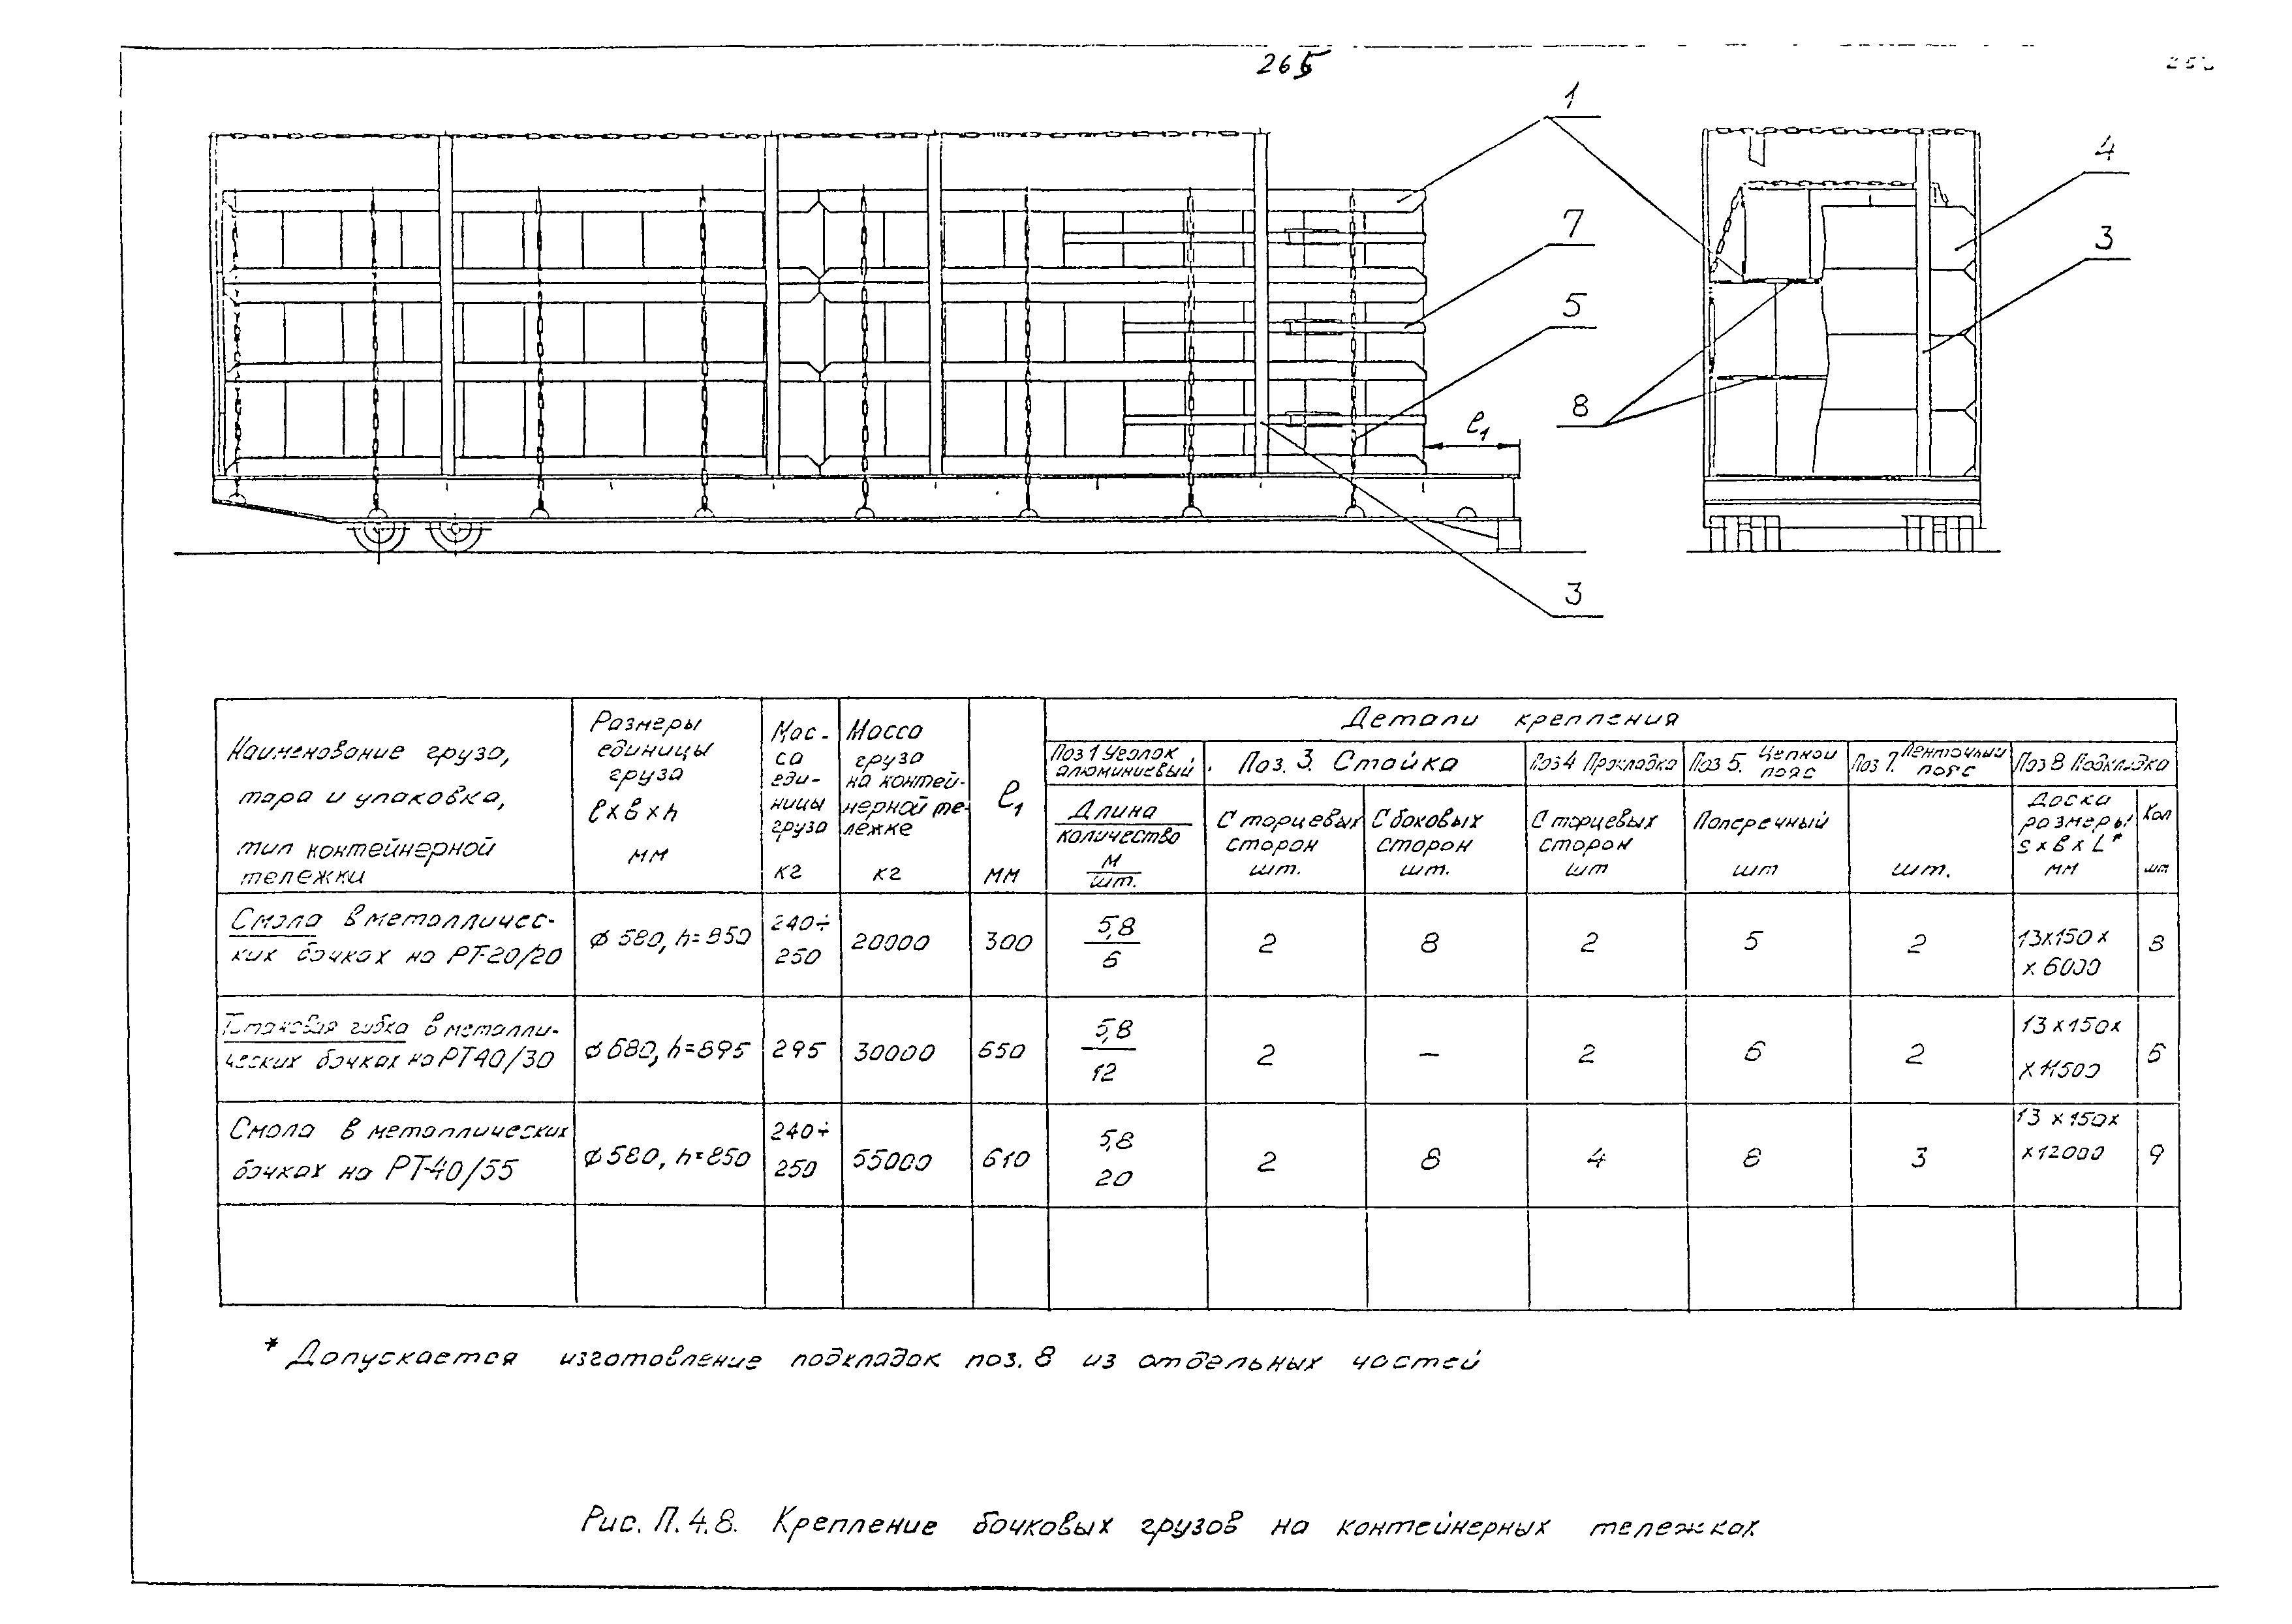 265
1
7
5
8
ℓ₁
3
4
3
Наименование груза,
тара и упаковка,
тип контейнерной
тележки
Размеры
единицы
груза
ℓ×в×h
мм
Мас-
са
еди-
ницы
груза
кг
Масса
груза
на контей-
нерной те-
лежке
кг
ℓ₁
мм
Детали крепления
Поз 1 Уголок
алюминиевый
Длина
количество
м
шт.
Поз. 3. Стойка
С торцевых
сторон
шт.
С боковых
сторон
шт.
Поз 4 Прокладка
С торцевых
сторон
шт
Поз 5. Цепной
пояс
Поперечный
шт
Поз 7. Ленточный
пояс
шт.
Поз 8 Подкладка
Доска
размеры
s×в×L*
мм
Кол
шт
Смола в металличес-
ких бочках на РТ-20/20
ϕ 580, h=850
240÷
250
20000
300
5,8
6
2
8
2
5
2
13×150×
×6000
8
в металли-
ческих бочках на РТ40/30
ϕ680, h=895
295
30000
650
5,8
12
2
—
2
6
2
13×150×
×11500
6
Смола в металлических
бочках на РТ-40/55
ϕ580, h=850
240÷
250
55000
610
5,8
20
2
8
4
8
3
13×150×
×12000
9
* Допускается изготовление подкладок поз. 8 из отдельных частей
Рис. П.4.8. Крепление бочковых грузов на контейнерных тележках